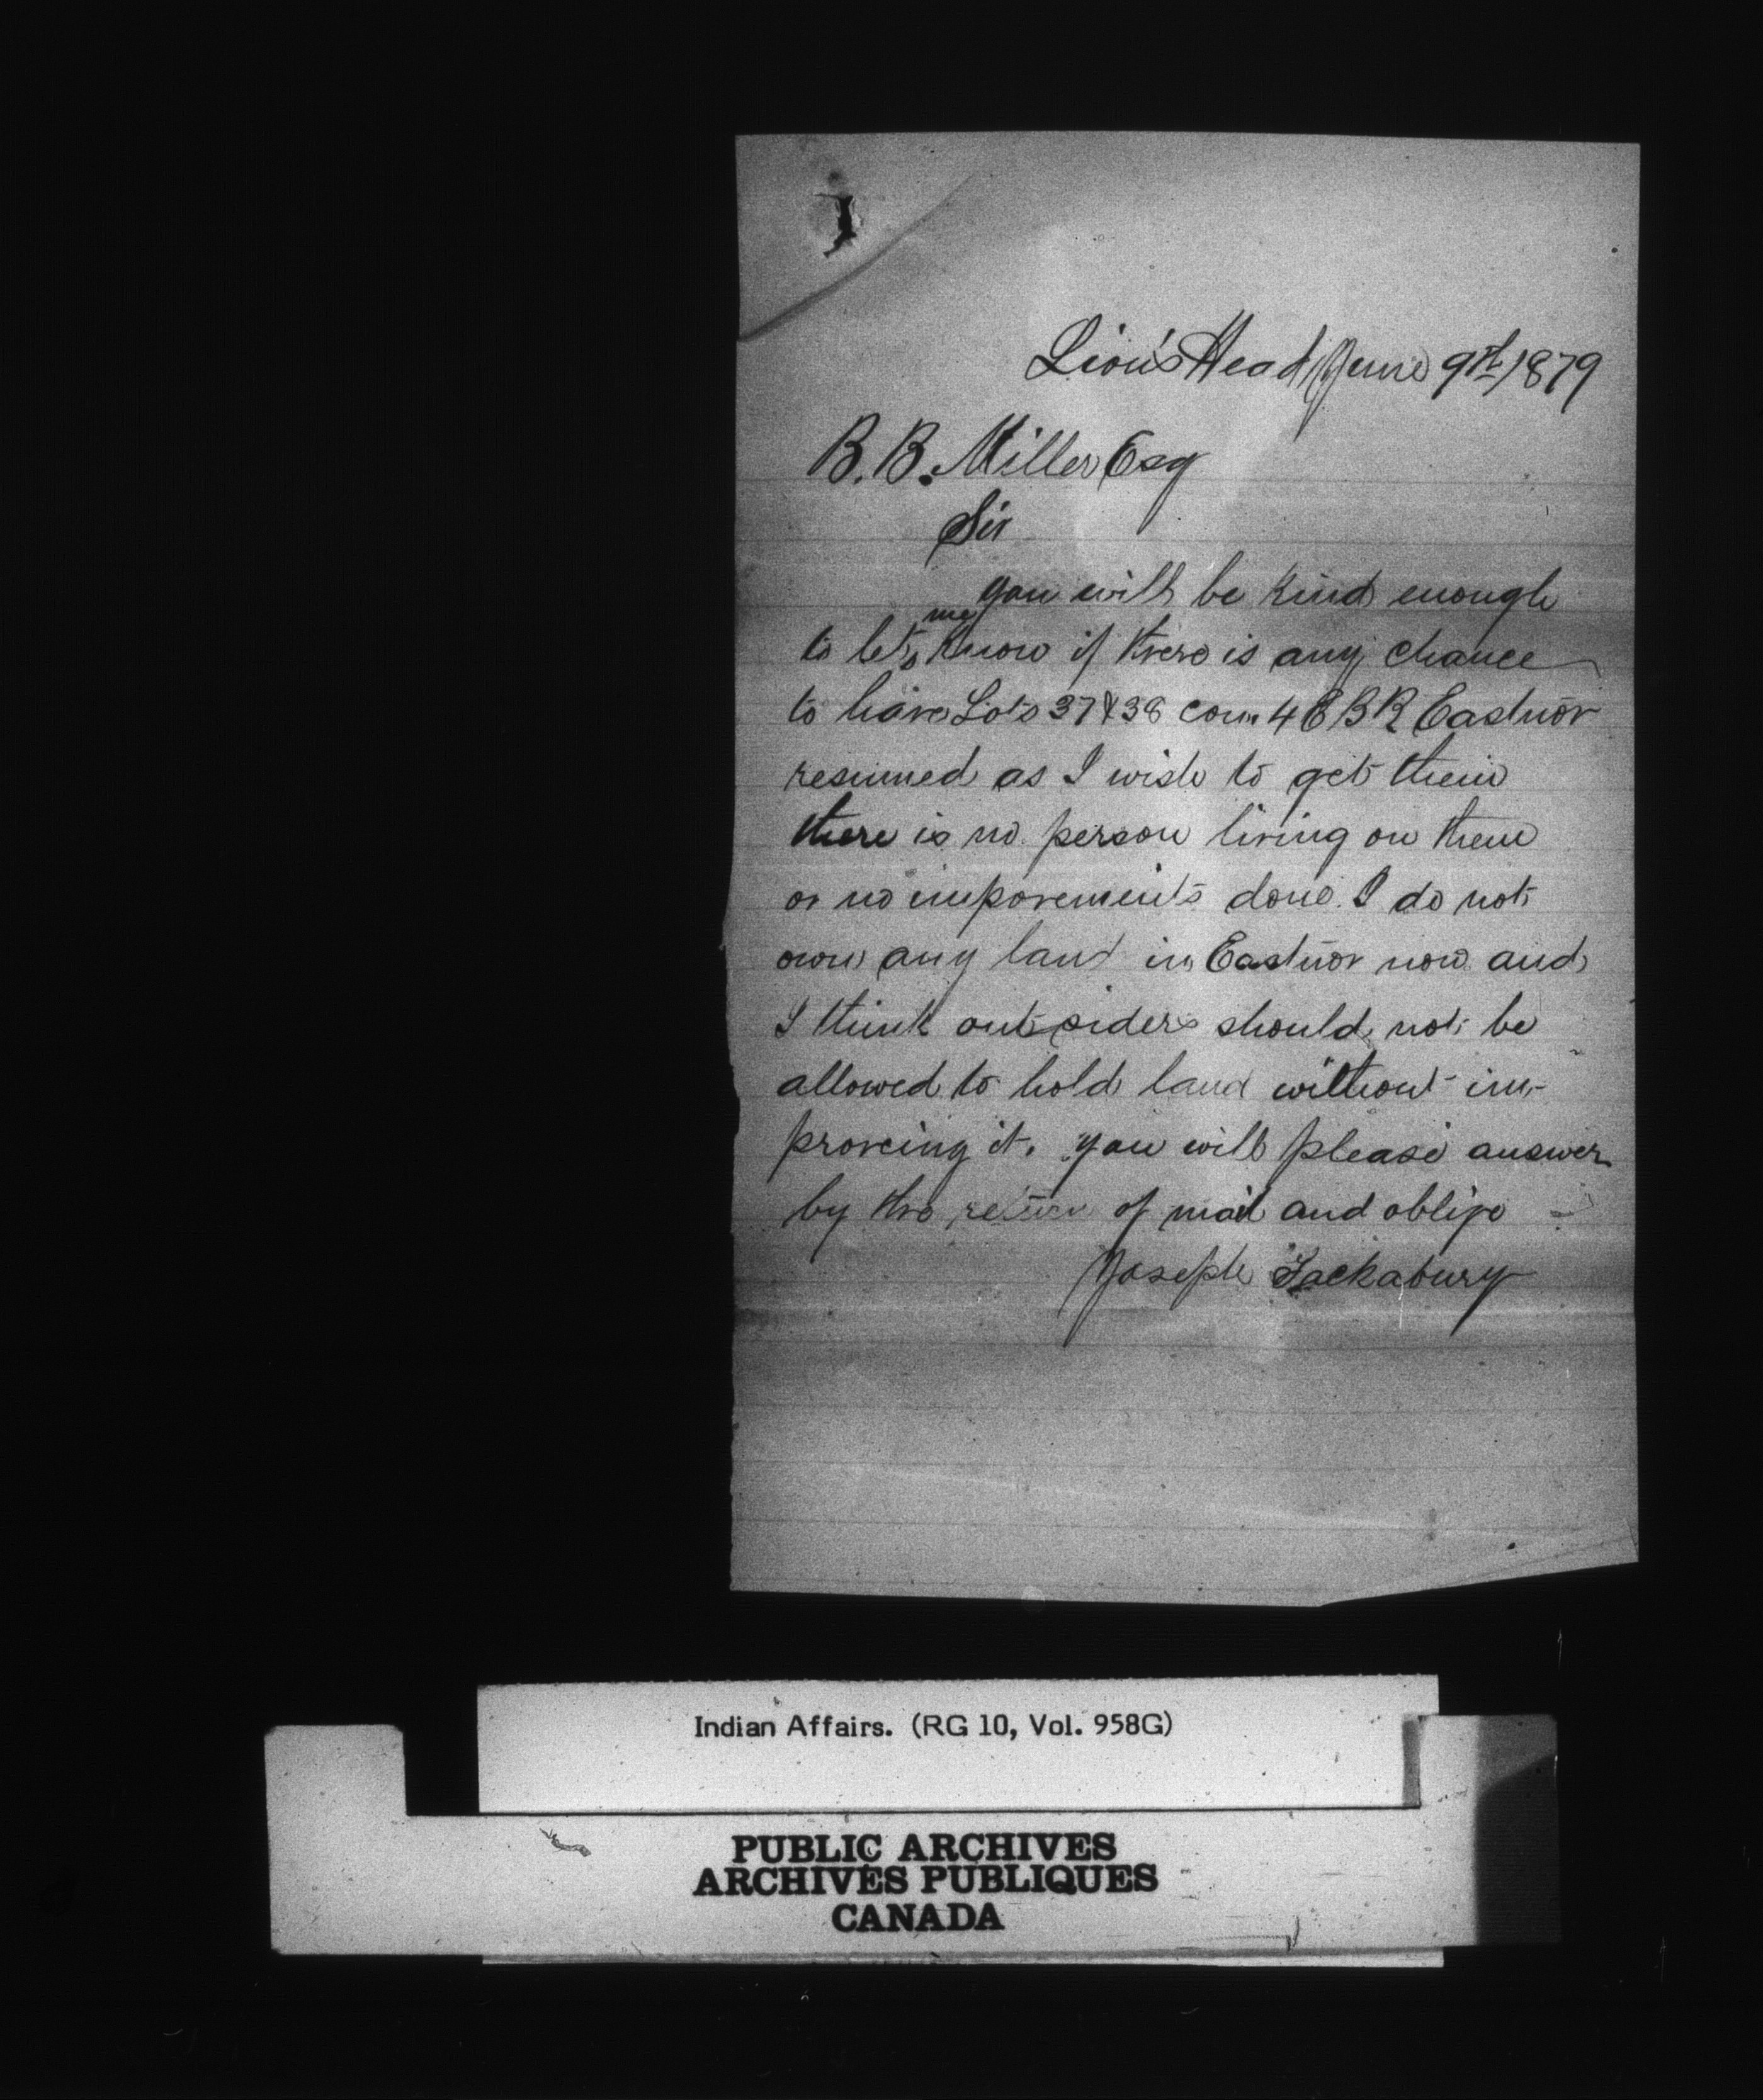 Lion's Head June 9th 1879
B. B. Miller Esq
Sir
you will be kind enough
to let me know if there is any chance
to have Lots 37 & 38 con. 4 E B R Eastnor
resumed as I wish to get them
there is no person living on them
or no imporements done. I do not
own any land in Eastnor now and
I think outsiders should not be
allowed to hold land without im-
proveing it. you will please answer
by the return of mail and oblige
Joseph Tackabury
Indian Affairs. (RG 10, Vol. 958G)
PUBLIC ARCHIVES
ARCHIVES PUBLIQUES
CANADA